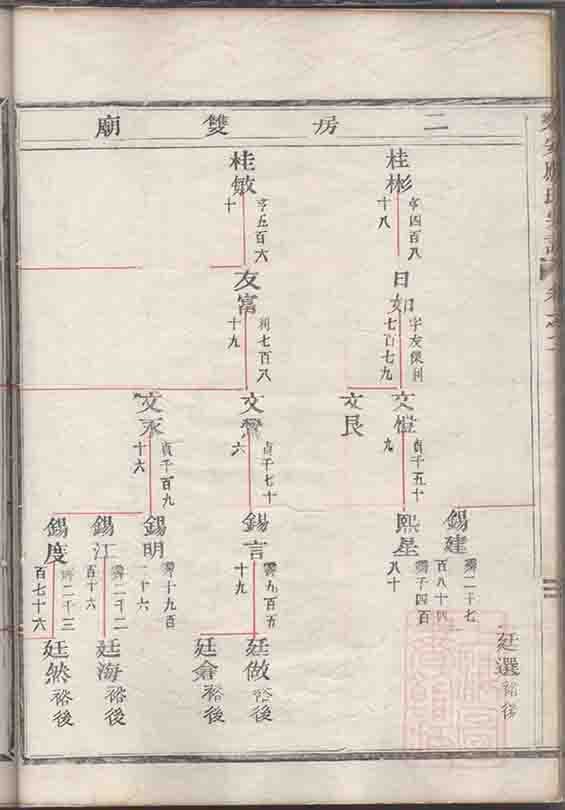 二房雙廟
桂彬
亨四百八
十八
桂敏
亨五百六
十
日如
字友傑利
七百七九
友富
利七百八
十九
文愷
貞千五十
九
文艮
文燦
貞千七十
六
文永
貞千百九
十六
錫建
霽二千七
百八十四
熙星
霽千四百
八十
錫言
霽九百五
十九
錫明
霽十九百
二十六
錫江
霽二千二
百十六
錫度
霽二千三
百七十六
廷選 裕後
廷做 裕後
廷會 裕後
廷海 裕後
廷然 裕後